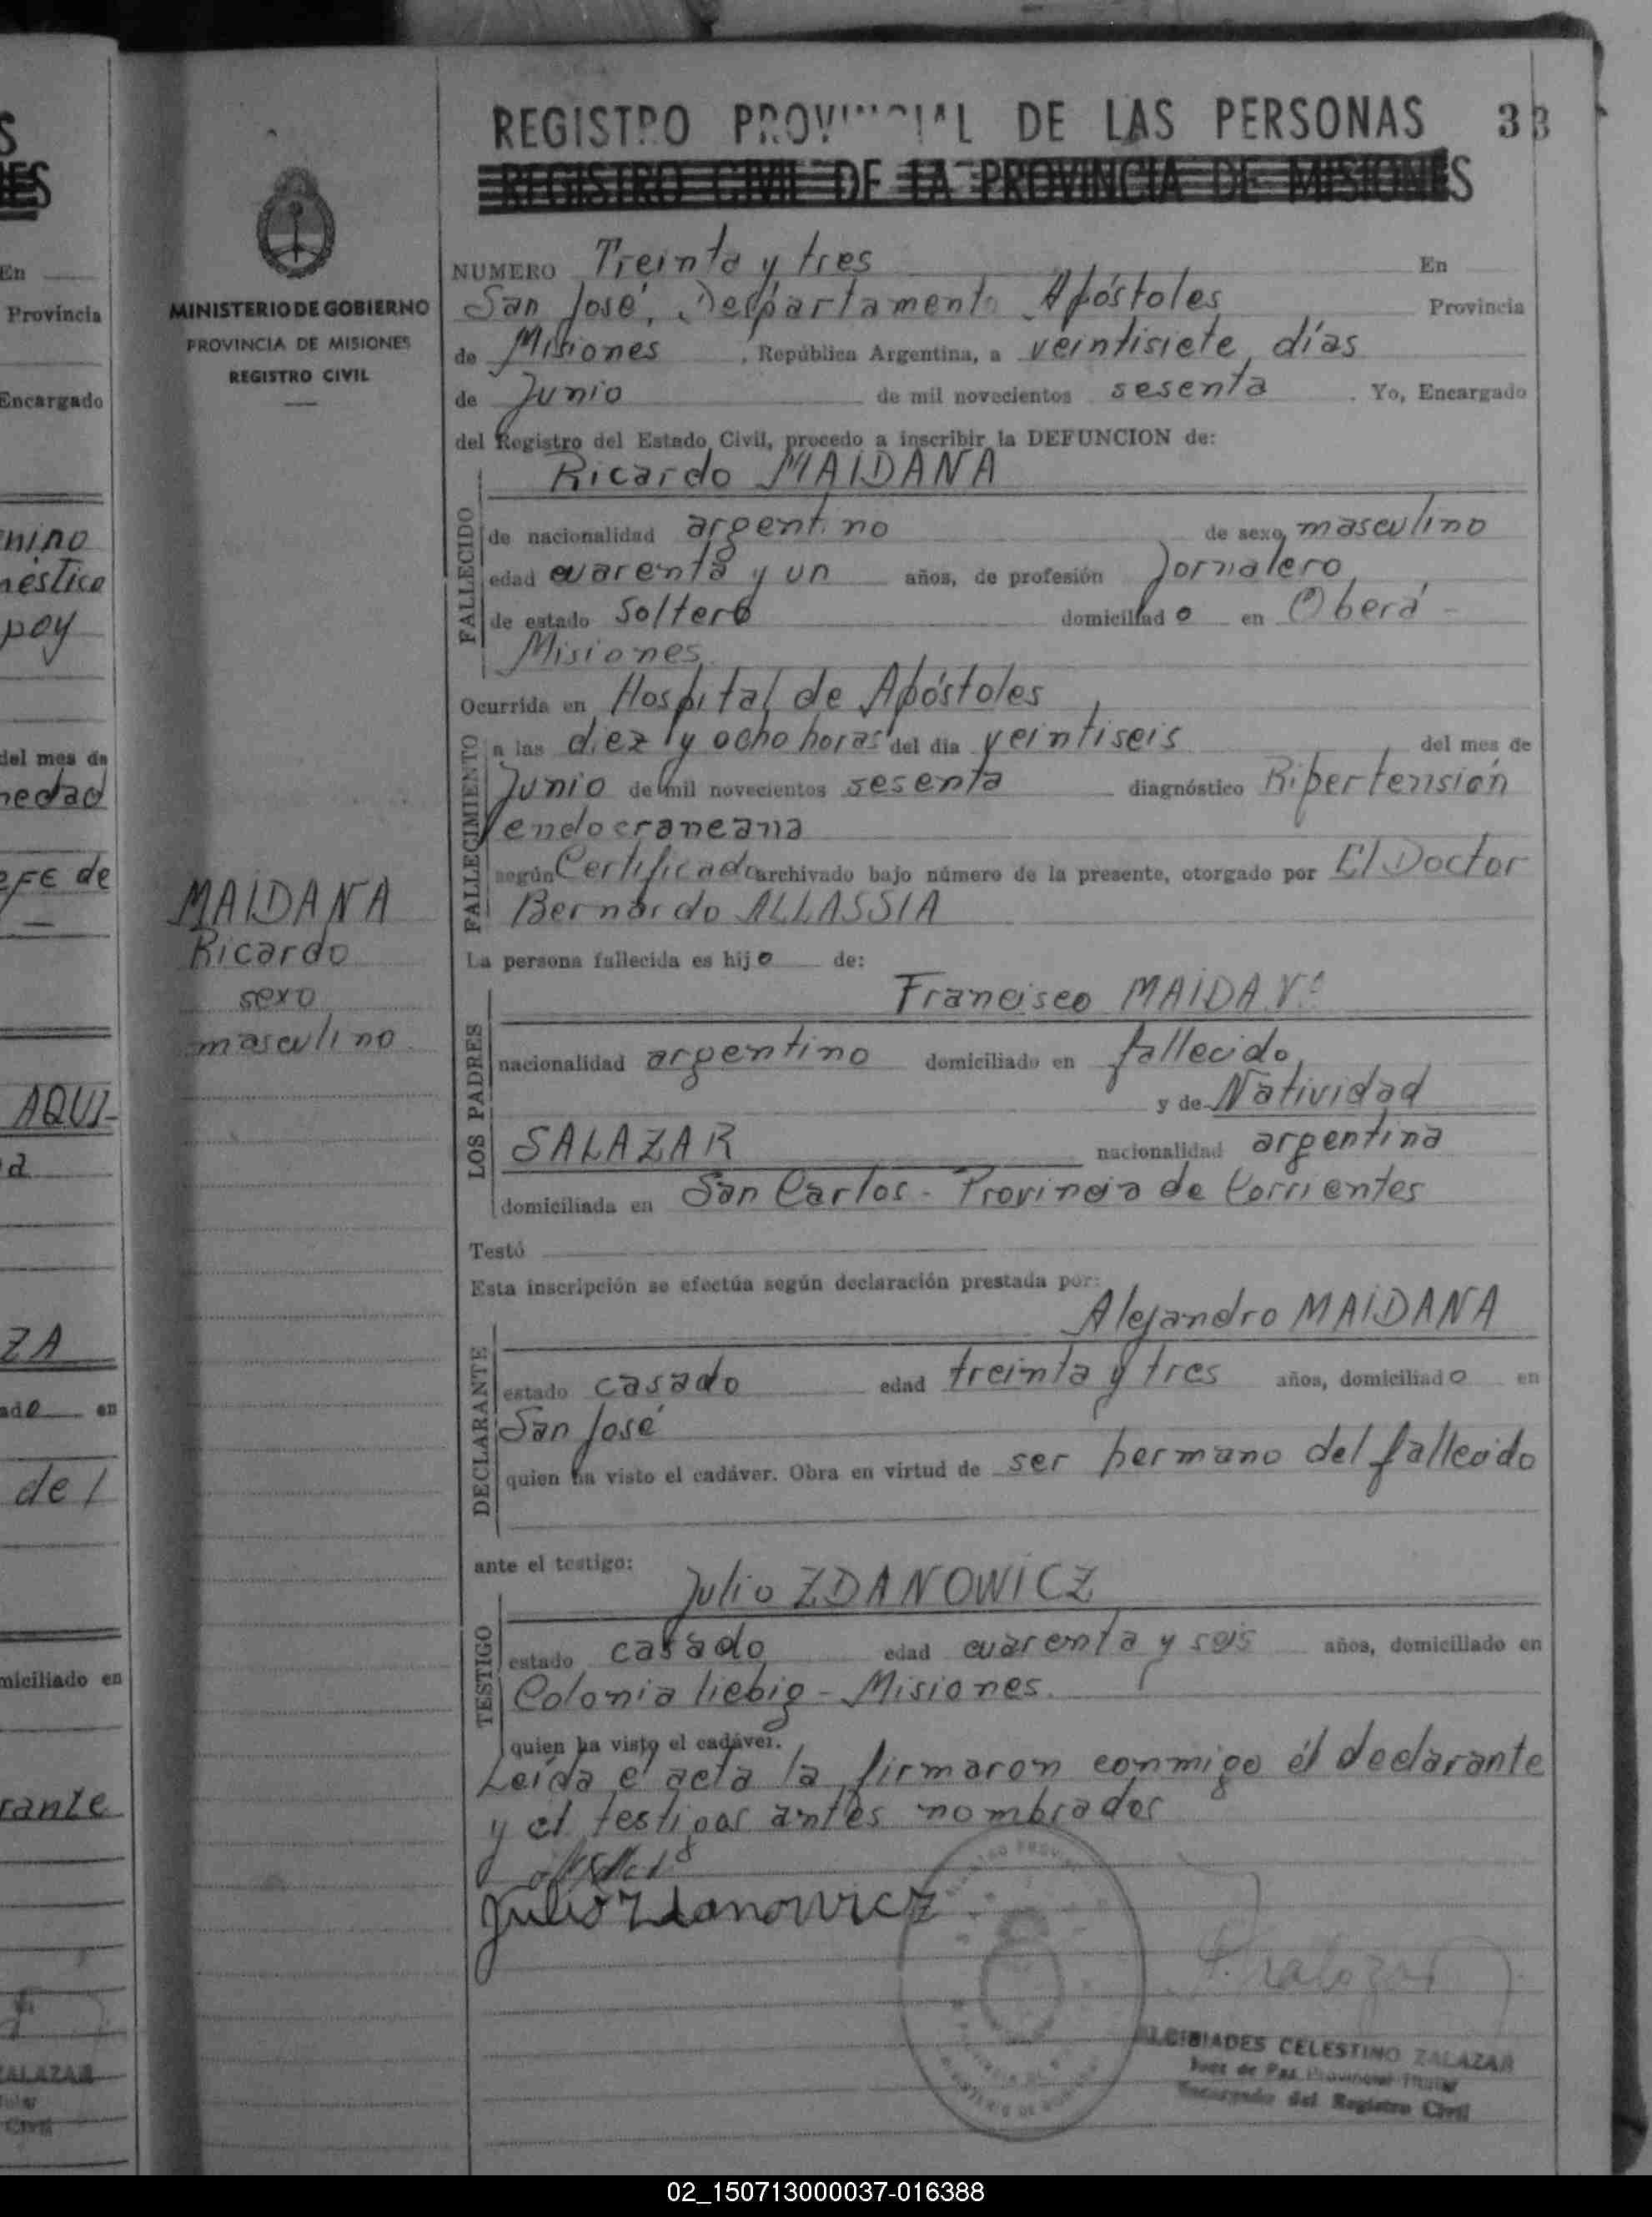 S
ES
En
Provincia
Encargado
nino
néstico
poy
del mes de
nedad
EFE de
AQUI-
a
ZA
ado en
del
miciliado en
rante
ZALAZAR
Civil
MINISTERIO DE GOBIERNO
PROVINCIA DE MISIONES
REGISTRO CIVIL
MAIDANA
Ricardo
sexo
masculino
REGISTRO PROVINCIAL DE LAS PERSONAS 33
REGISTRO CIVIL DE LA PROVINCIA DE MISIONES
NUMERO Treinta y tres En
San José, Departamento Apóstoles Provincia
de Misiones, República Argentina, a veintisiete días
de Junio de mil novecientos sesenta. Yo, Encargado
del Registro del Estado Civil, procedo a inscribir la DEFUNCION de:
Ricardo MAIDANA
FALLECIDO
de nacionalidad argentino de sexo masculino
edad cuarenta y un años, de profesión Jornalero
de estado Soltero domiciliado en Oberá -
Misiones
Ocurrida en Hospital de Apóstoles
FALLECIMIENTO
a las diez y ocho horas del día veintiseis del mes de
Junio de mil novecientos sesenta diagnóstico Hipertensión
endocraneana
según Certificado archivado bajo número de la presente, otorgado por El Doctor
Bernardo ALLASSIA
La persona fallecida es hijo de:
LOS PADRES
Francisco MAIDANA
nacionalidad argentino domiciliado en fallecido
y de Natividad
SALAZAR nacionalidad argentina
domiciliada en San Carlos - Provincia de Corrientes
Testó
Esta inscripción se efectúa según declaración prestada por:
Alejandro MAIDANA
DECLARANTE
estado casado edad treinta y tres años, domiciliado en
San José
quien ha visto el cadáver. Obra en virtud de ser hermano del fallecido
ante el testigo:
Julio ZDANOWICZ
TESTIGO
estado casado edad cuarenta y seis años, domiciliado en
Colonia liebig - Misiones.
quien ha visto el cadáver.
Leída el acta la firmaron conmigo el declarante
y el testigos antes nombrados
Julio Zdanowicz
ALCIBIADES CELESTINO ZALAZAR
Juez de Paz Provincial Titular
Encargado del Registro Civil
02_150713000037-016388